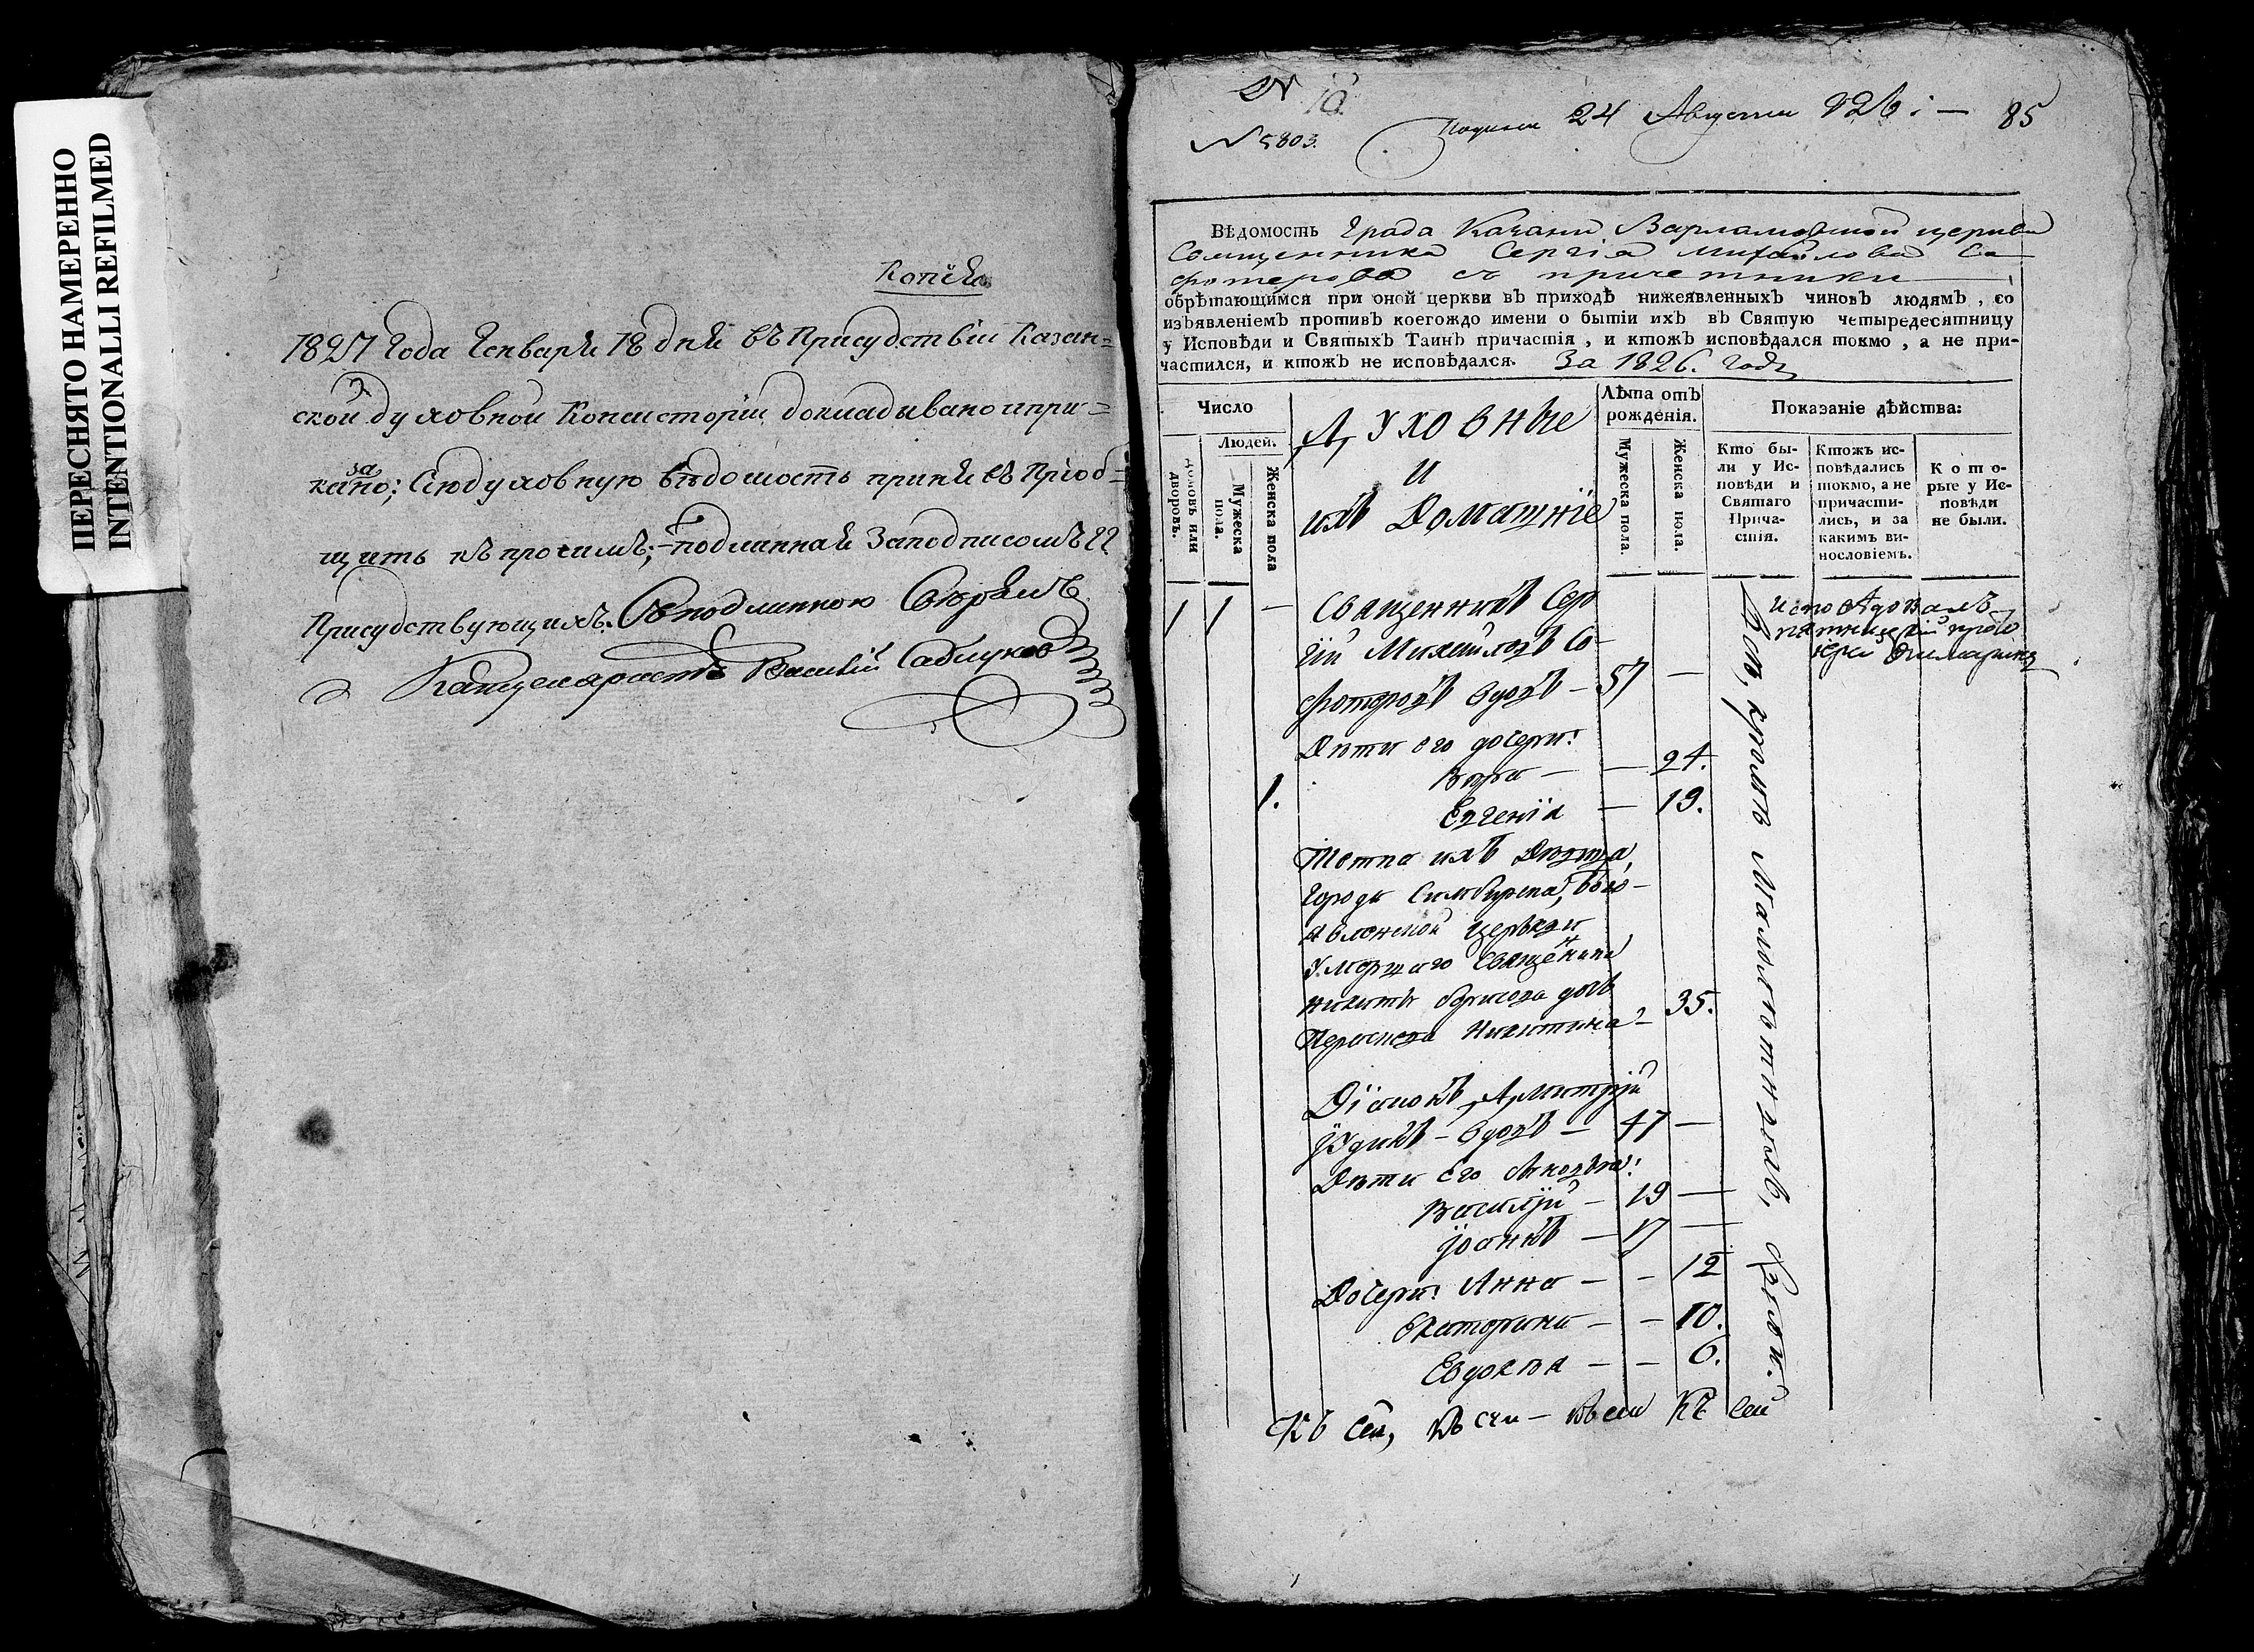 ПЕРЕСНЯТО НАМЕРЕННО
INTENTIONALLI REFILMED
Копія
1827 года Генваря 18 дня въ Присудствіи Казан=
ской духовной Консисторіи докладывано и при=
казано: Сію духовную вѣдомость приня въ Пріоб=
щить къ протчимъ; подлинная За подписомъ ГГ
Присудствующихъ. Съ подлинною Свѣрялъ
Канцеляристъ Василій Саблуковъ
№ 10
№ 5803.
Подана 24 Августа 826: — 85
Вѣдомость Града Казани Варламовской церкви
Священника Сергіа Михайлова Со
фотерова съ причетники
обрѣтающимся при оной церкви въ приходѣ нижеявленныхъ чиновъ людямъ, со
изъявленіемъ противъ коегождо имени о бытіи ихъ въ Святую четыредесятницу
у Исповѣди и Святыхъ Таинъ причастія, и ктожъ исповѣдался токмо, а не при-
частился, и ктожъ не исповѣдался. За 1826. годъ
Число
Людей.
Домовъ или дворовъ.
Мужеска пола.
Женска пола
Духовные
и
ихъ Домашніе
Лѣта отъ рожденія.
Мужеска пола.
Женска пола.
Показаніе дѣйства:
Кто бы-
ли у Ис-
повѣди и
Святаго
Прича-
стія.
Ктожъ ис-
повѣдались
токмо, а не
причасти-
лись, и за
какимъ ви-
нословіемъ.
Кото-
рые у Ис-
повѣди
не были.
1 1 — Священникъ Сер
гій Михайловъ Со-
фотеровъ вдовъ — 57 —
Дѣти его дочери:
Вѣра — — 24.
1. Евгенія — 19.
Тетка ихъ Дѣвица,
города Симбирска, Бого-
явленской Церкви
умершаго Священника
Никиты Борисова дочь
Пераскева Никитина — 35.
Діаконъ Дмитрій
— вдовъ — 47 —
Дѣти Его сыновья:
Василій — 19 —
Іоаннъ — 17 —
Дочери: Анна — — 12
Екатерина — — 10.
Евдокія — — 6.
Всѣ, кромѣ Малолѣтнихъ, были.
исповѣдовалъ
Къ сей, Къ сей — Къ сей Къ сей